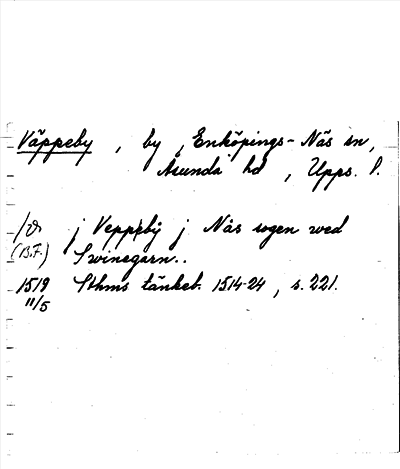 Väppeby, by, Enköpings-Näs sn,
Åsunda hd, Upps. l.
j Veppebÿ j Näs sogen wed
(B.F.) Swinegarn..
1519 Sthms tänkeb. 1514-24, s. 221.
11/5